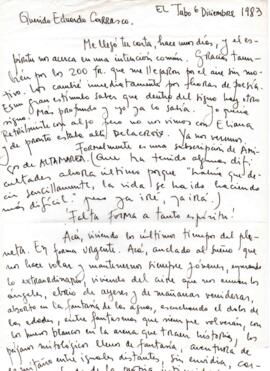 EL Tabo 6 Diciembre 1983
Querido Eduardo Carrasco.
Me llegó tu carta, hace unos días, y el es-
píritu nos acerca en una intuición común. Gracias tam-
bién por los 200 fr. que me llegaron por el aire sin mo-
tivo. Los cambié inmediatamente por flores de poesía.
Es un gran estímulo saber que dentro del signo hay otro
signo. Más profundo y yo ya lo sabía. Joyería
con algo nos vimos con Eliana
y de pronto estaba allí DELACROIX. Ya nos veremos
Formalmente es una subscripción de Ami-
gos de ALTAMAREA (que ha tenido algunas difi-
cultades ahora último porque "había que de-
cir sencillamente, la vida se ha ido haciendo
más difícil." pero ya iré, ya irá!)
Falta forma a tanto espíritu!
Acá, viviendo los últimos tiempos del pla-
neta. En forma urgente. Acá, anclado al sueño que
nos hace volar y mantenernos siempre jóvenes, esperando
lo extraordinario, viviendo del aire que nos envían los
ángeles, ebrio de ayeres y de mañanas venideras,
absorto en la fantasía de las aguas, escuchando el dolor de
las edades, entre fantasmas que siempre volverán, con
los pasos blancos en la arena que traen historias, los
pájaros mitológicos llenos de fantasía, aventura de
solitario entre iguales distantes, sin envidia, con